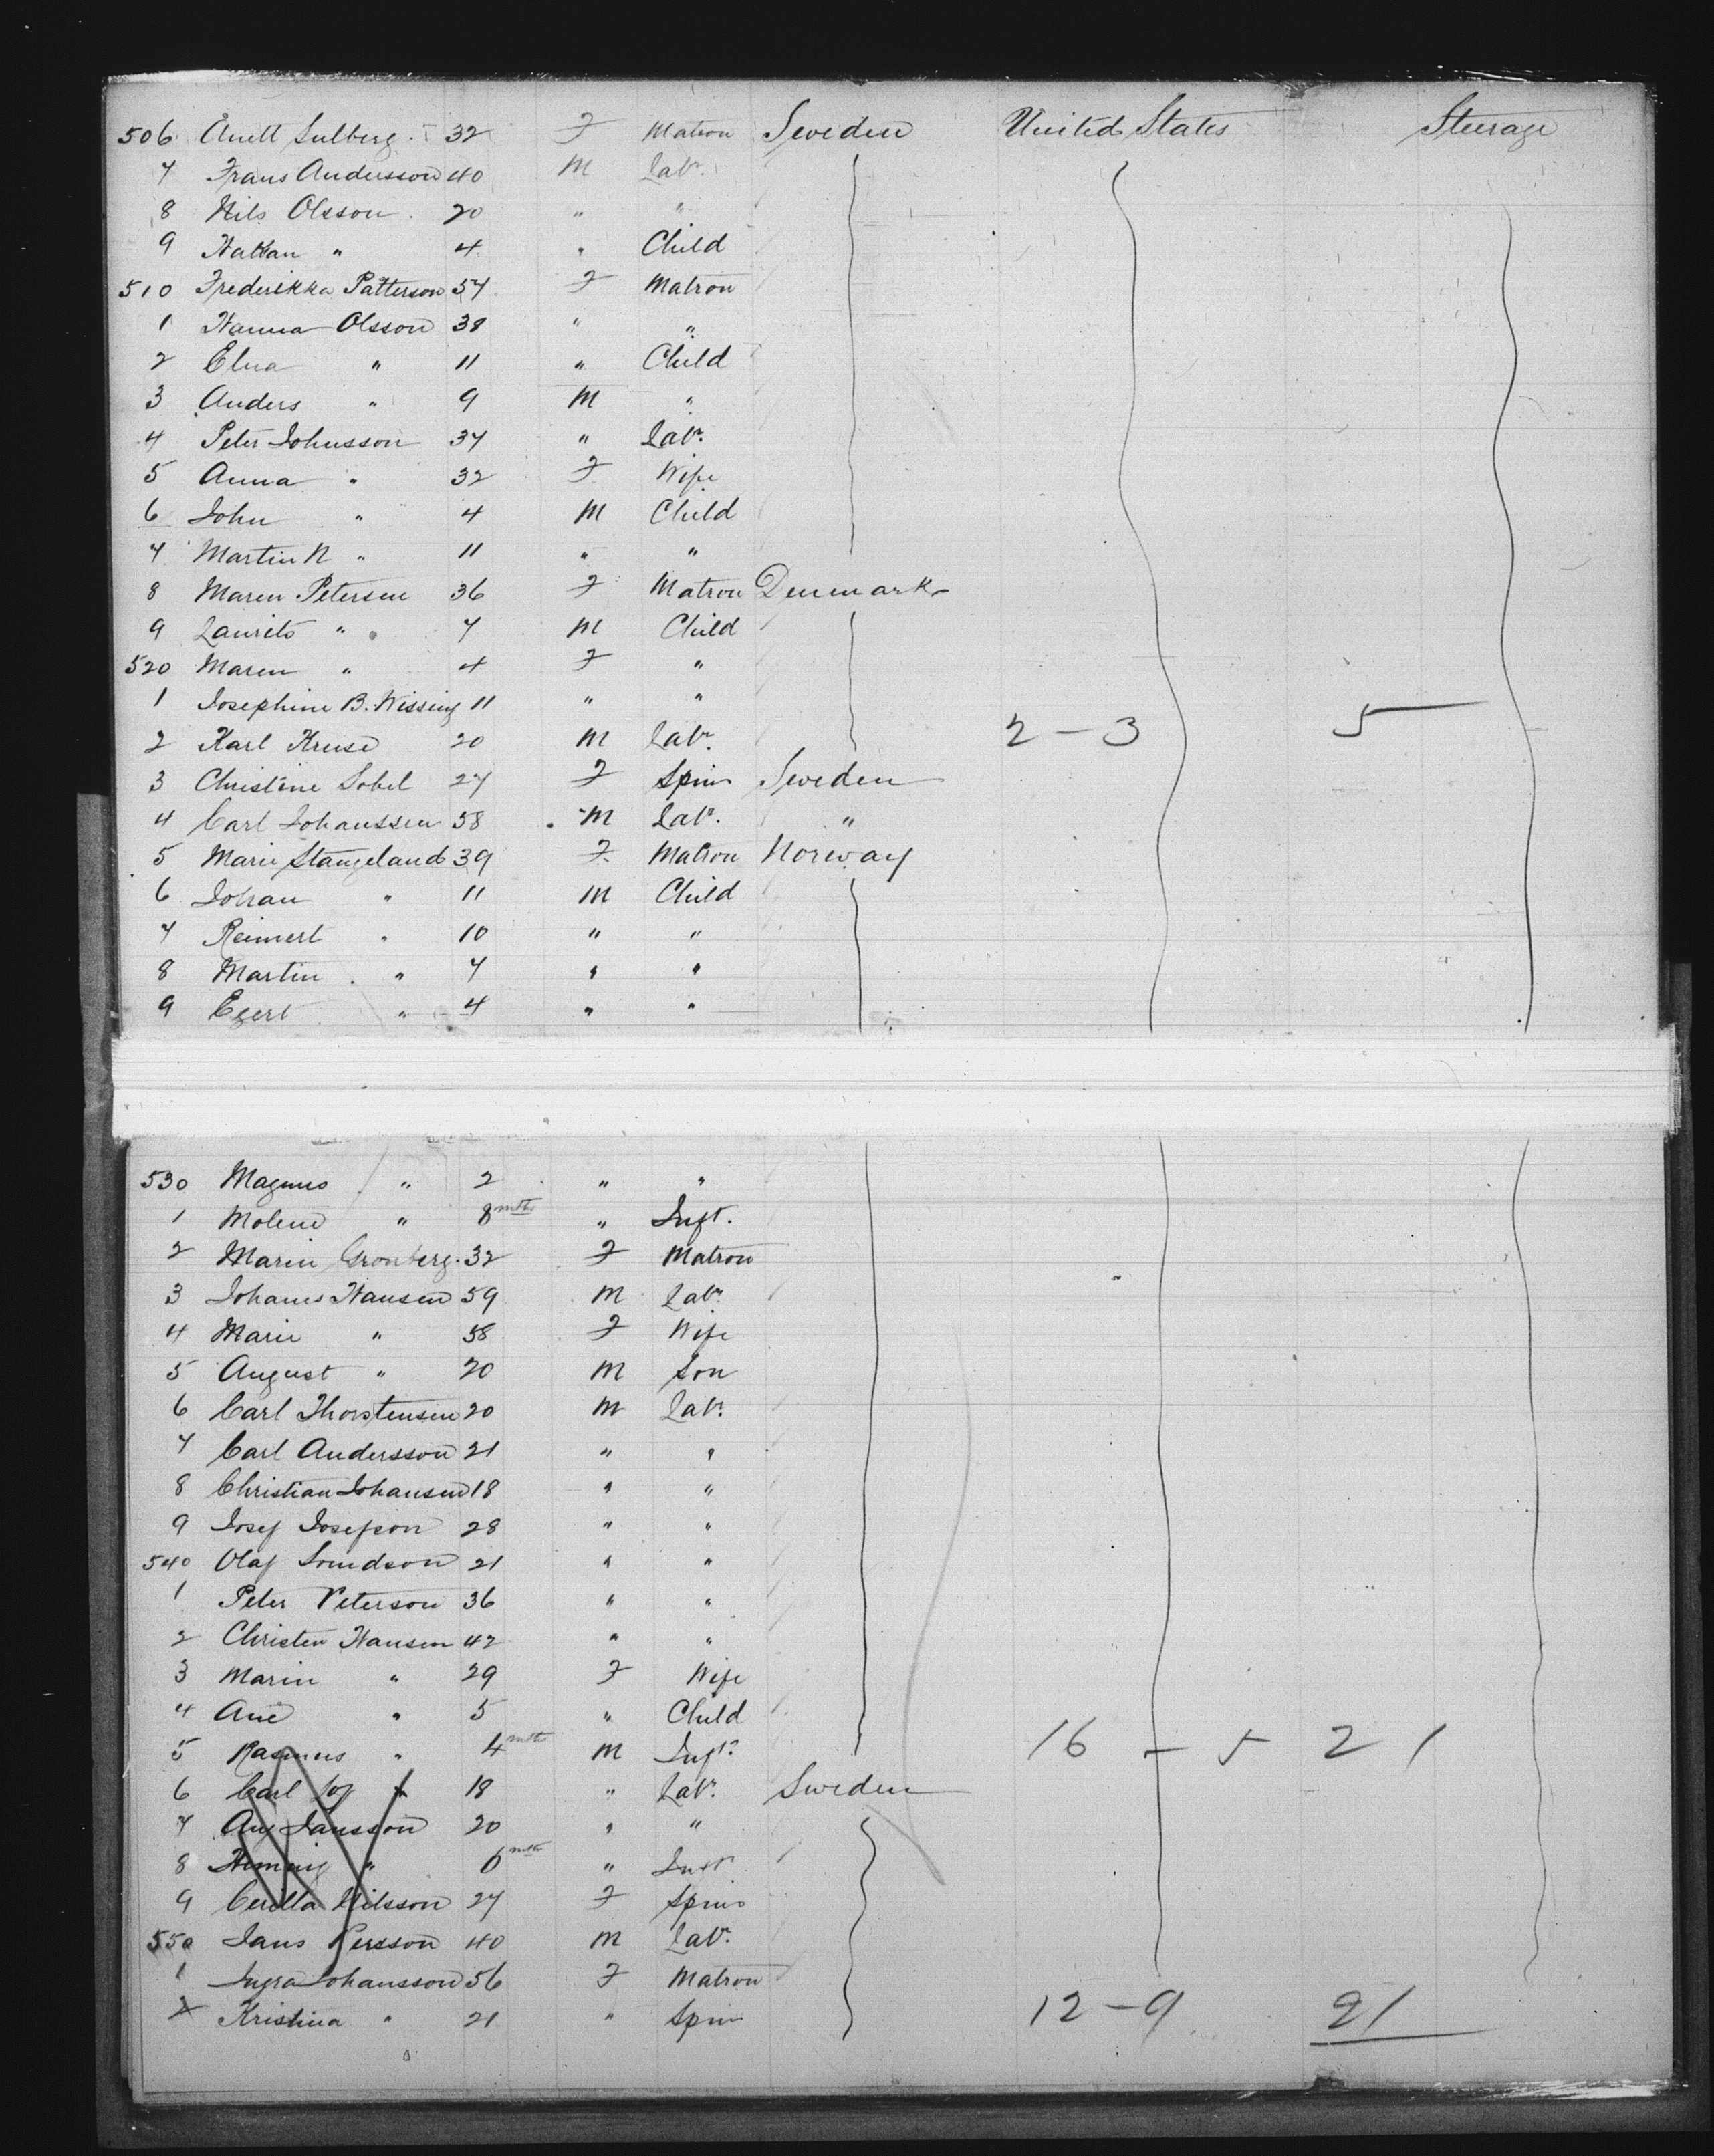 506 Anett Sulberg 32 F Matron Sweden United States Steerage
7 Frans Andersson 40 M Labr.
8 Nils Olsson 20 " "
9 Hakan " 4 " Child
510 Frederikka Patterson 57 F Matron
1 Hanna Olsson 38 " "
2 Elna " 11 " Child
3 Anders " 9 M "
4 Peter Johnsson 37 " Labr.
5 Anna " 32 F Wife
6 John " 4 M Child
7 Martin N " 11 " "
8 Maren Petersen 36 F Matron Denmark
9 Laurits " 7 M Child
520 Maren " 4 F "
1 Josephine B. Wissing 11 " "
2 Karl Kruse 20 M Labr. 2 – 3 5
3 Christine Sobel 27 F Spins Sweden
4 Carl Johanssen 58 M Labr. "
5 Marie Stangeland 39 F Matron Norway
6 Johan " 11 M Child
7 Reimert " 10 " "
8 Martin " 7 " "
9 Egert " 4 " "
530 Magnus " 2 " "
1 Molene " 8 mths " Inft.
2 Maren Gronberg 32 F Matron
3 Johanes Hansen 59 M Labr.
4 Marie " 58 F Wife
5 August " 20 M Son
6 Carl Thorstensen 20 M Labr.
7 Carl Andersson 21 " "
8 Christian Johansen 18 " "
9 Josef Josefson 28 " "
540 Olaf 21 " "
1 Peter Peterson 36 " "
2 Christen Hansen 42 " "
3 Maren " 29 F Wife
4 Ane " 5 " Child
5 Rasmus " 4 mths M Inft. 16 – 5 21
6 Carl 18 " Labr. Sweden
7 Aug Jansson 20 " "
8 Heming " 6 mths " Inft.
9 Cerilla Nilsson 27 F Spins
550 Jans Persson 40 M Labr.
1 Ingra Johansson 56 F Matron
2 Kristina " 21 " Spin 12 – 9 21